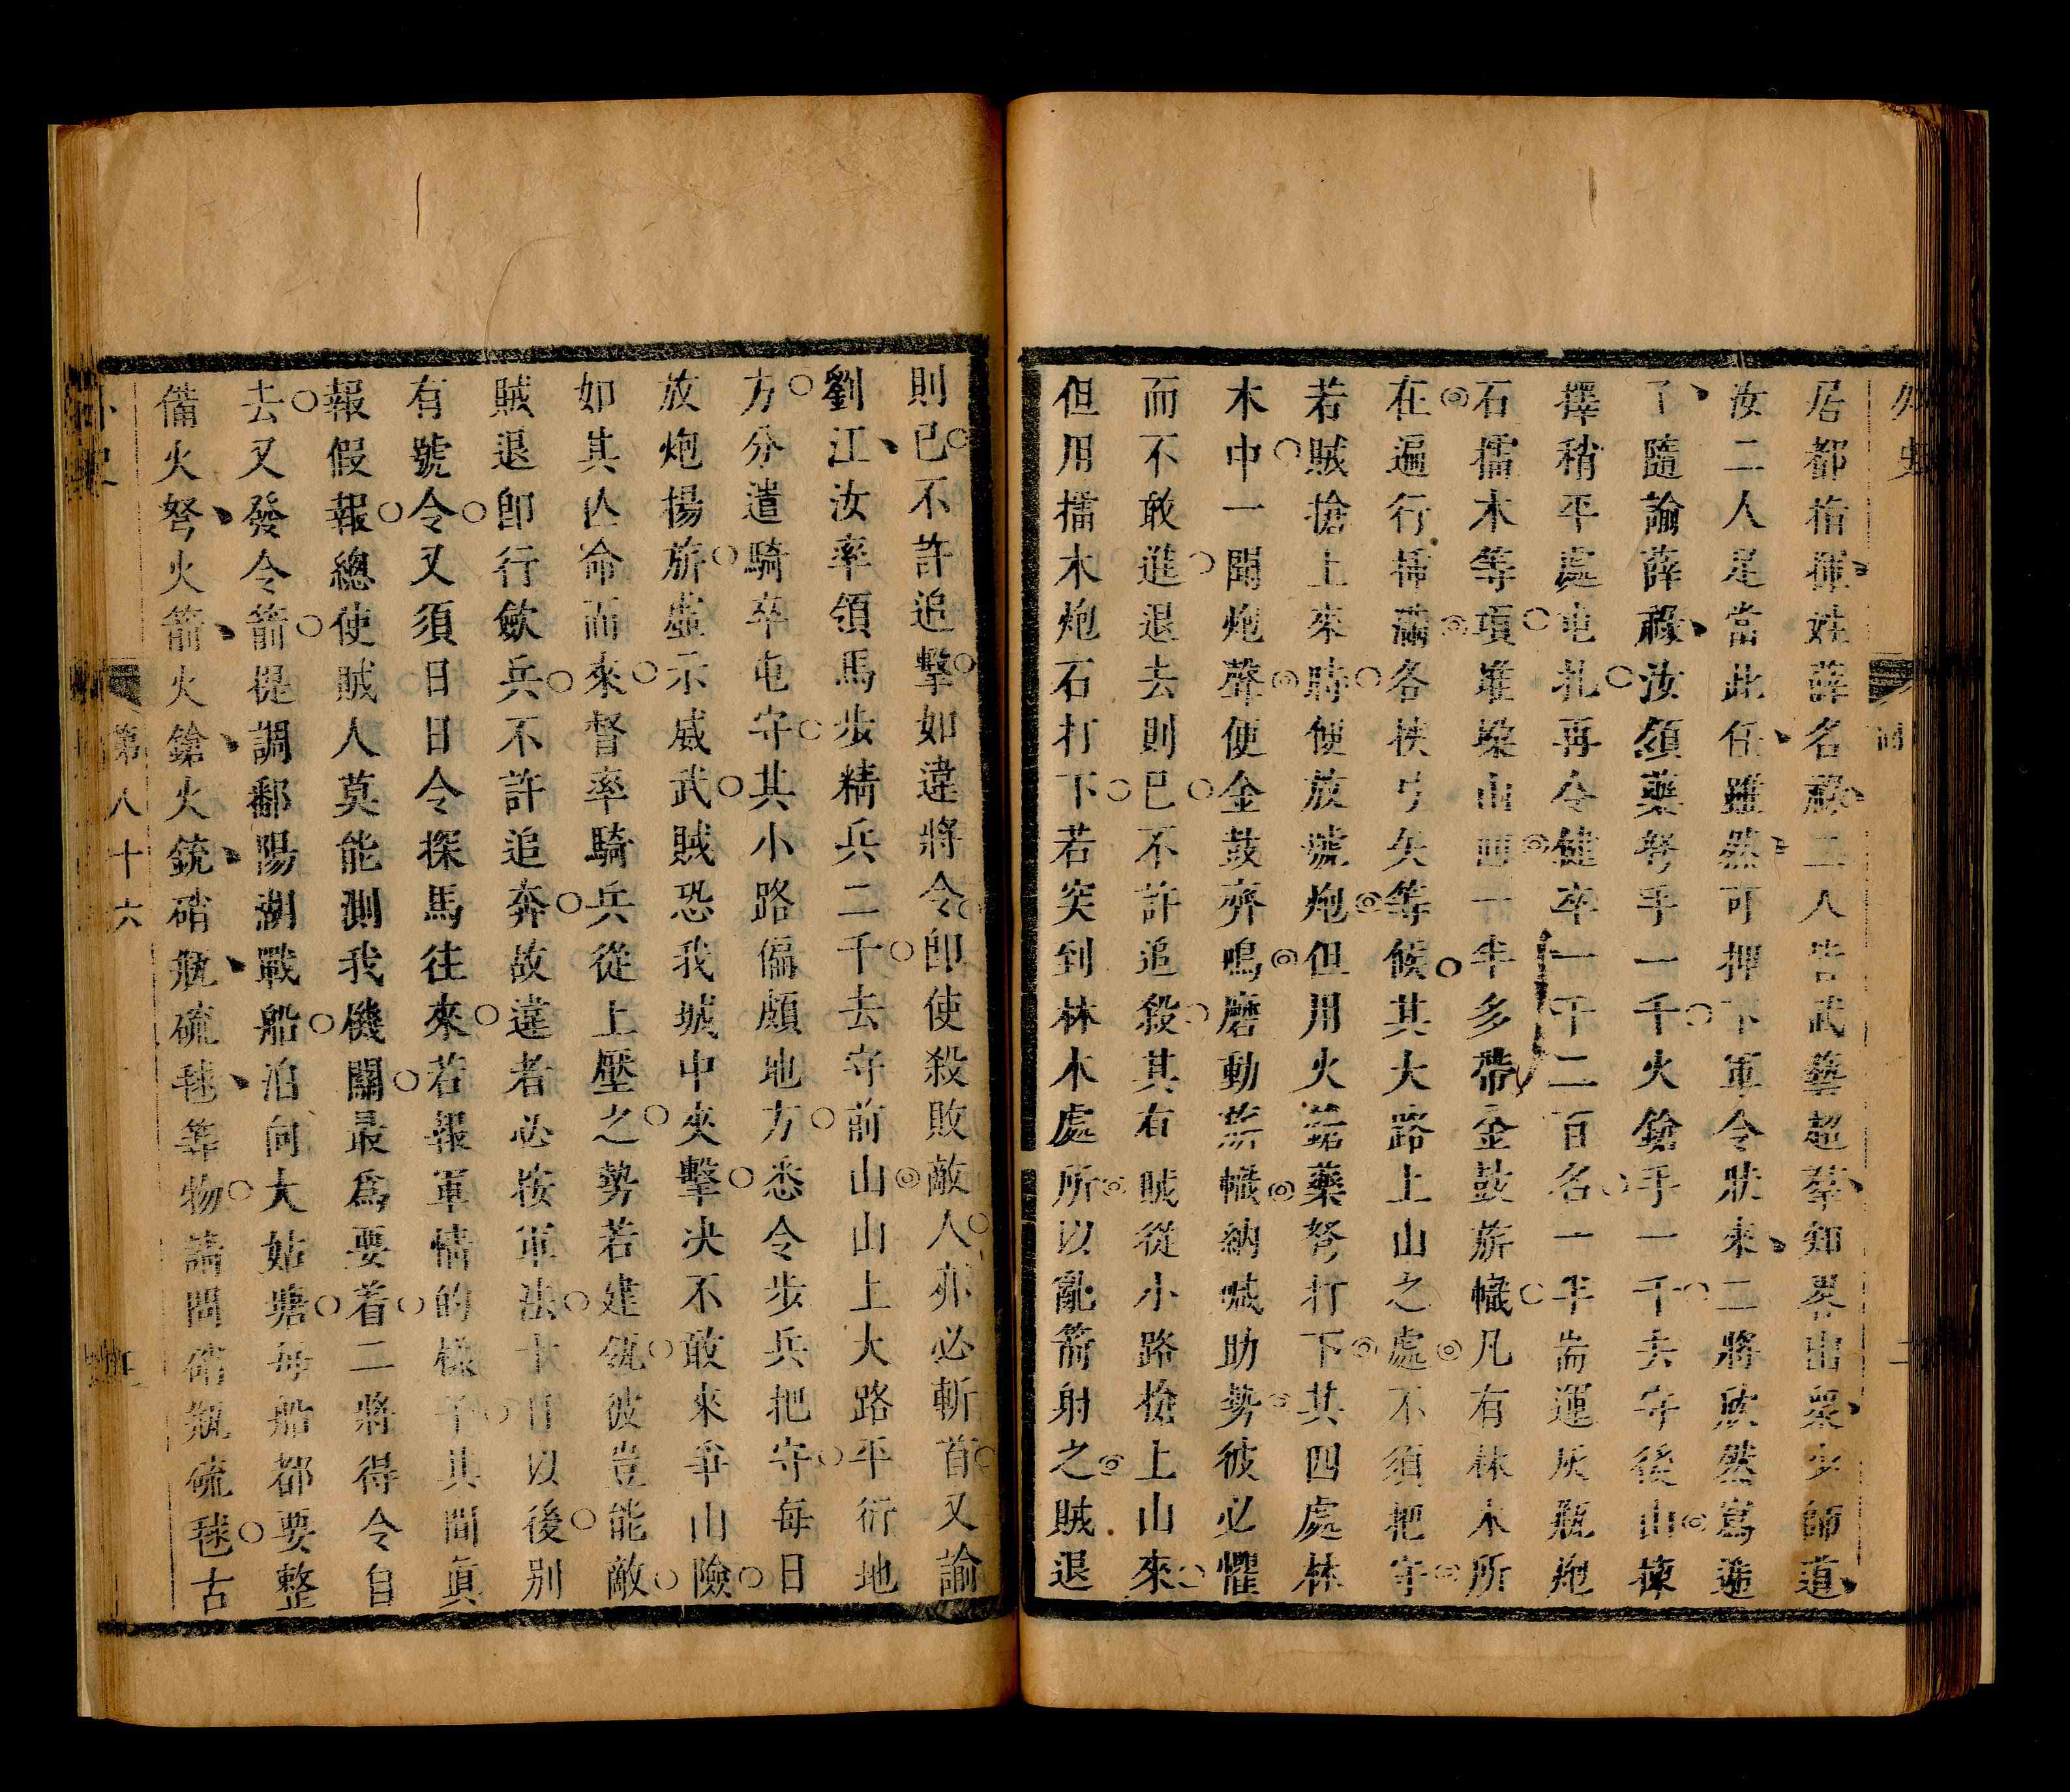 外史
居都指揮姓薛名祿二人皆武藝超羣知畧出衆少師道
汝二人足當此任雖然可押下軍令狀來二將欣然寫遞
了隨諭薛祿汝領藥弩手一千火鎗手一千去守後山揀
擇稍平處屯扎再令健卒一千二百名一半耑運灰瓶炮
石擂木等項堆垜山凹一半多帶金鼓旂幟凡有林木所
在遍行插滿各挾弓矢等候其大路上山之處不須把守
若賊搶上來時便放號炮但用火鎗藥弩打下其四處林
木中一聞炮聲便金鼓齊鳴磨動旂幟吶喊助勢彼必懼
而不敢進退去則已不許追殺其右賊從小路搶上山來
但用擂木炮石打下若突到林木處所以亂箭射之賊退
則已不許追擊如違將令卽使殺敗敵人亦必斬首又諭
劉江汝率領馬步精兵二千去守前山山上大路平衍地
方分遣騎卒屯守其小路偏頗地方悉令步兵把守每日
放炮揚旂虛示威武賊恐我城中夾擊决不敢來爭山險
如其亡命而來督率騎兵從上壓之勢若建瓴彼豈能敵
賊退卽行歛兵不許追奔故違者必按軍法十日以後別
有號令又須日日令探馬往來若報軍情的樣子其間眞
報假報總使賊人莫能測我機關最爲要着二將得令自
去又發令箭提調鄱陽湖戰船泊向大姑塘每船都要整
備火弩火箭火鎗火銃硝瓶硫毬等物請問硝瓶硫毬古
外史
第八十六